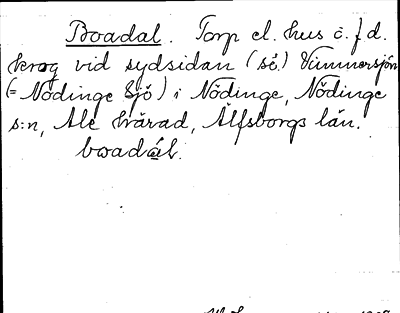 Boadal. Torp el. hus o. f. d.
krog vid sydsidan (sö.) Vimmersjön
(= Nödinge Sjö) i Nödinge, Nödinge
s:n, Ale härad, Älfsborgs län.
boadál.